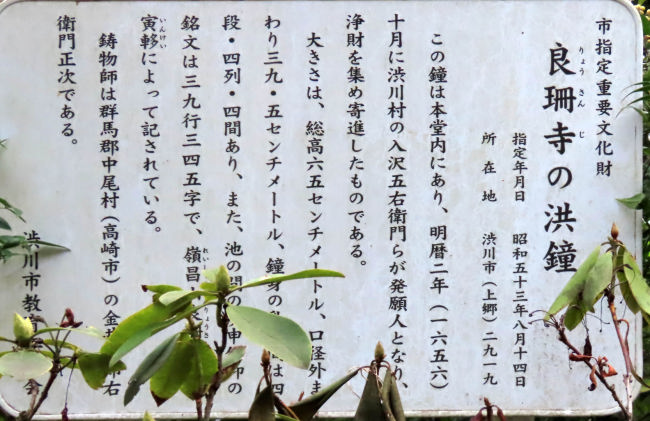 市指定重要文化財
良珊寺の洪鐘
りょうさんじ
指定年月日 昭和五十三年八月十四日
所在地 渋川市(上郷)二九一九
この鐘は本堂内にあり、明暦二年(一六五六)
十月に渋川村の入沢五右衛門らが発願人となり、
浄財を集め寄進したものである。
大きさは、総高六五センチメートル、口径外ま
わり三九・五センチメートル、鐘身の は四
段・四列・四間あり、また、池の間の 神 の
銘文は三九行三四五字で、嶺昌
れい
寅軫によって記されている。
いんけい
鋳物師は群馬郡中尾村(高崎市)の金 右
衛門正次である。
渋川市教育 会